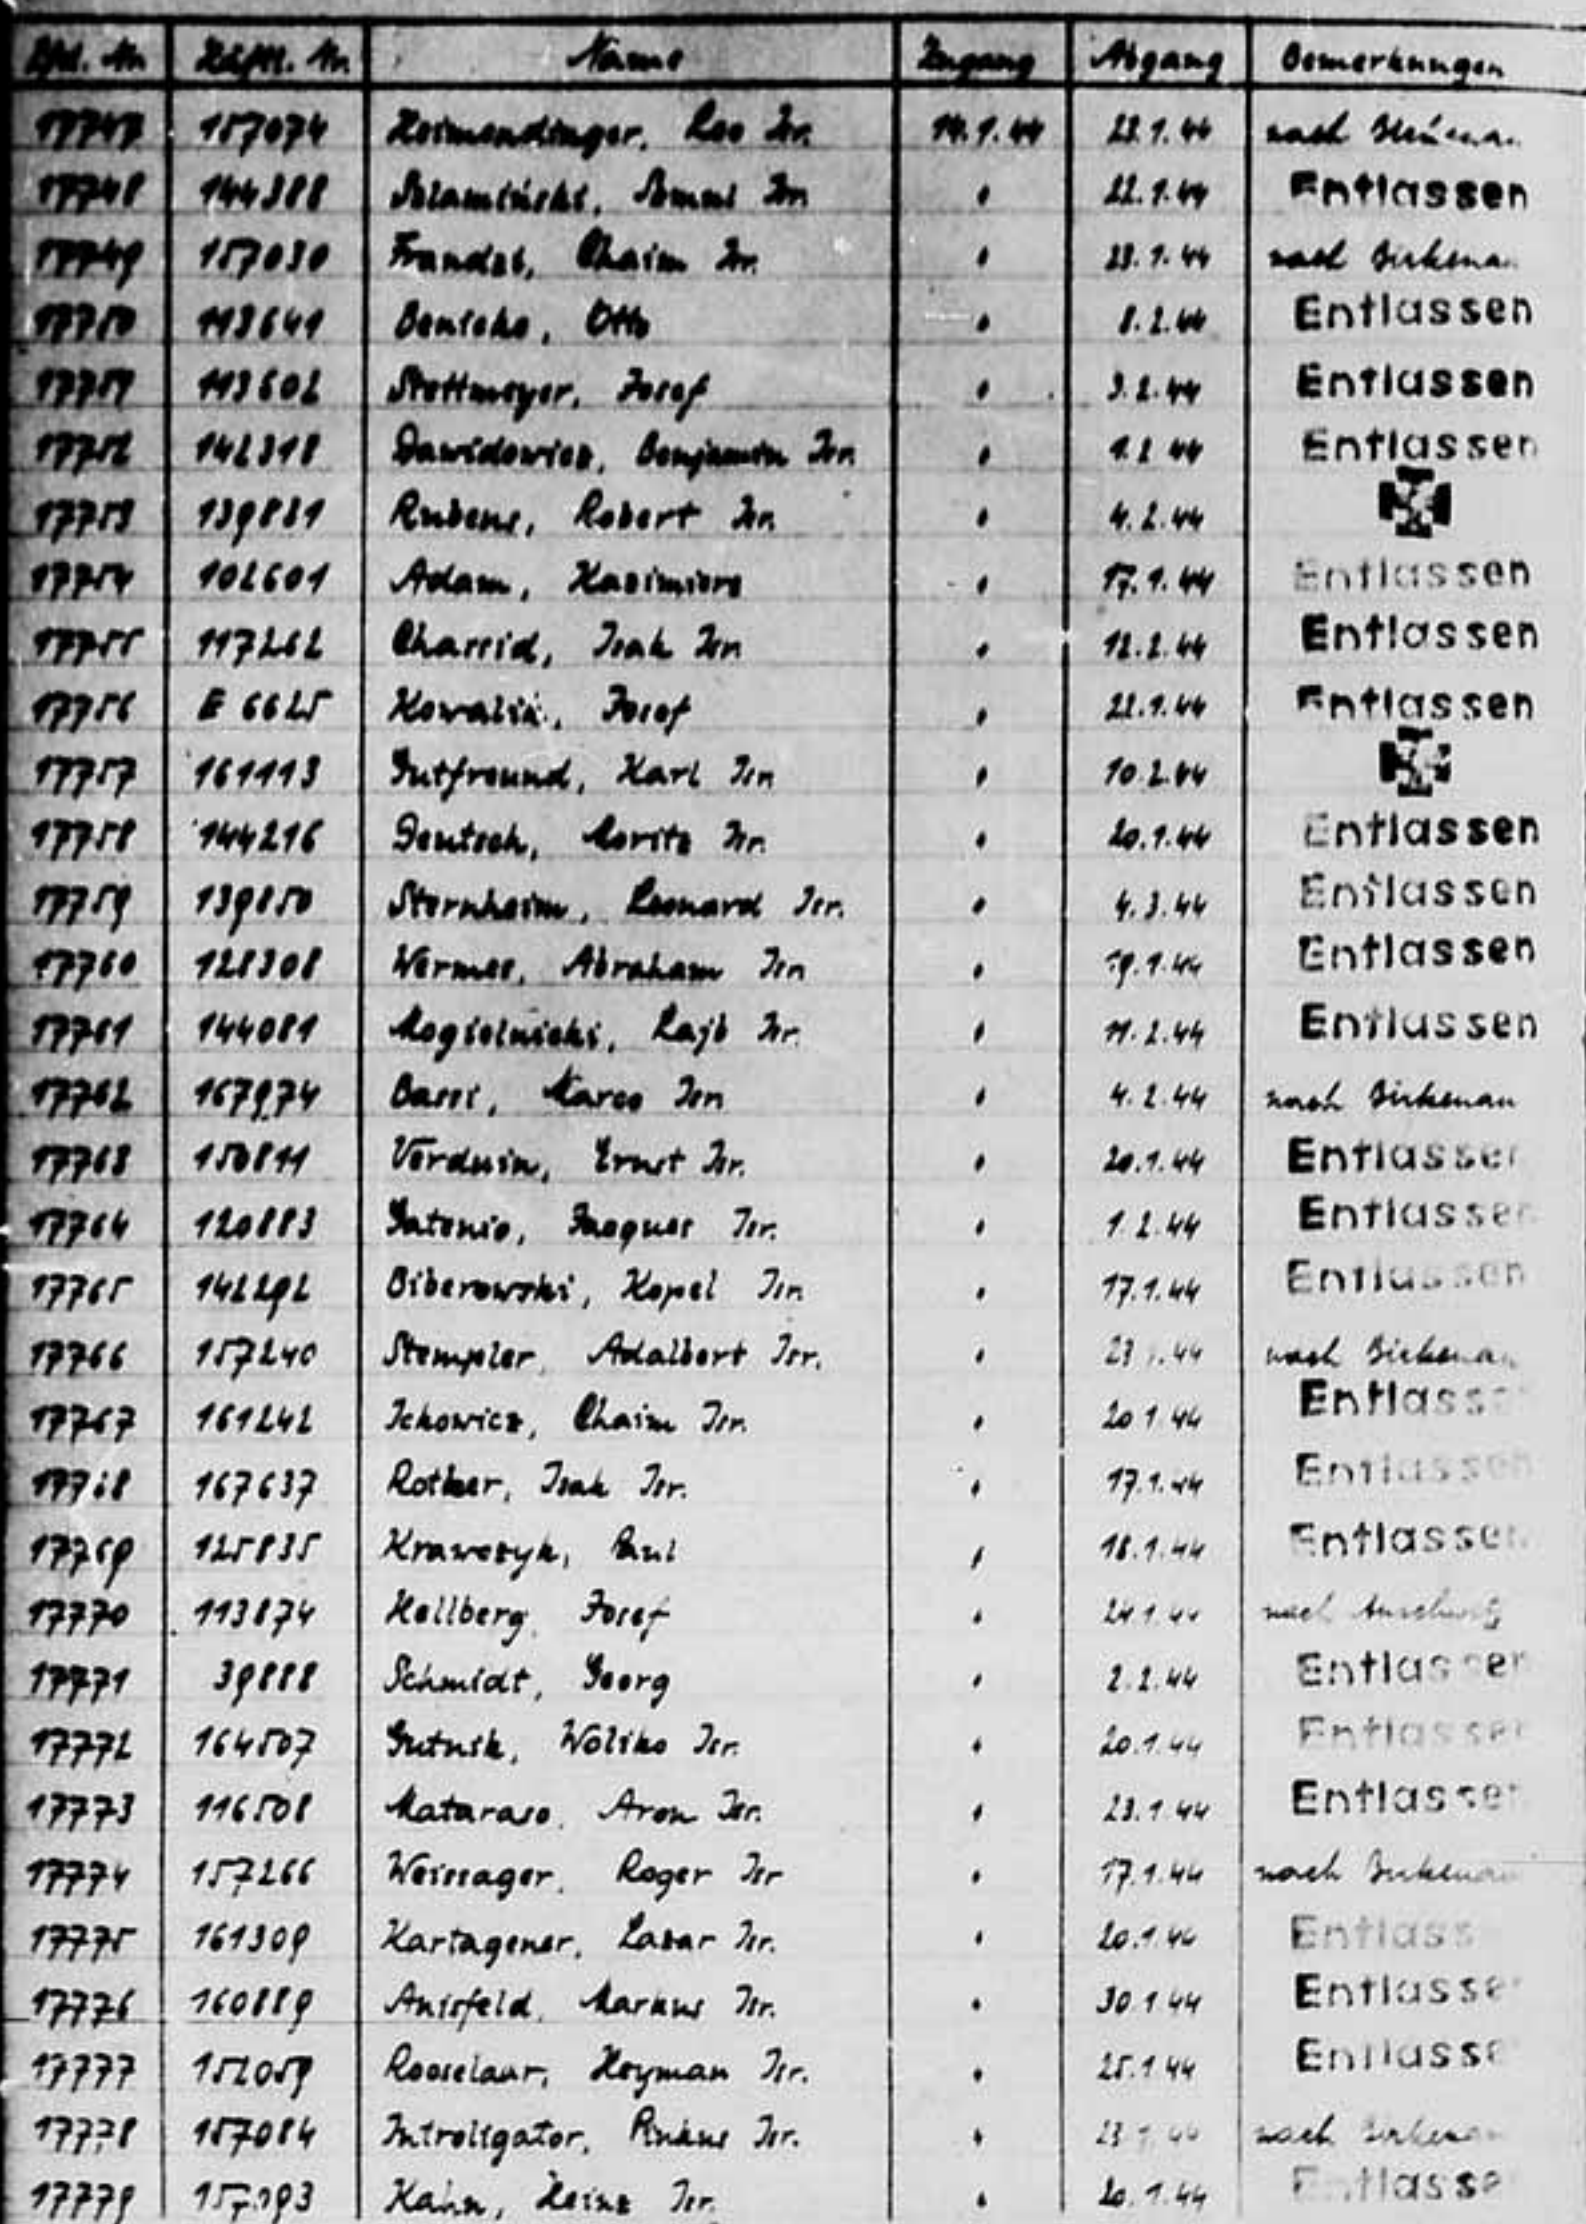 Lfd. Nr. Häftl. Nr. Name Zugang Abgang Bemerkungen
17747 157074 Heimendinger, Leo Isr. 14.1.44 23.1.44 nach Birkenau
17748 144388 Isr. " 22.1.44 Entlassen
17749 157030 Chaim Isr. " 23.1.44 nach Birkenau
17750 113641 Benicke, Otto " 8.2.44 Entlassen
17751 113602 Stottmeyer, Josef " 3.2.44 Entlassen
17752 142318 Dawidowicz, Benjamin Isr. " 1.2.44 Entlassen
17753 139831 Rubens, Robert Isr. " 4.2.44
17754 102601 Adam, Kazimierz " 17.1.44 Entlassen
17755 117262 Charrid, Isak Isr. " 12.2.44 Entlassen
17756 E 6625 Kowalik, Josef " 22.1.44 Entlassen
17757 161113 Gutfreund, Karl Isr. " 10.2.44
17758 144216 Deutsch, Moritz Isr. " 20.1.44 Entlassen
17759 139850 Sternheim, Leonard Isr. " 4.3.44 Entlassen
17760 128308 Wermes, Abraham Isr. " 19.1.44 Entlassen
17761 144081 Mogielnicki, Lajb Isr. " 11.2.44 Entlassen
17762 167974 Bassi, Marco Isr. " 4.2.44 nach Birkenau
17763 150811 Verduin, Ernst Isr. " 20.1.44 Entlassen
17764 120883 Gatenio, Jaques Isr. " 1.2.44 Entlassen
17765 142292 Biberowski, Kopel Isr. " 17.1.44 Entlassen
17766 157240 Stempler, Adalbert Isr. " 23.1.44 nach Birkenau
17767 161242 Ickowicz, Chaim Isr. " 20.1.44 Entlassen
17768 167637 Isak Isr. " 17.1.44 Entlassen
17769 125835 Krawczyk, Paul " 18.1.44 Entlassen
17770 113874 Hellberg, Josef " 24.1.44 nach Auschwitz
17771 39888 Schmidt, Georg " 2.2.44 Entlassen
17772 164507 Gutnik, Woliko Isr. " 20.1.44 Entlassen
17773 116508 Mataraso, Aron Isr. " 23.1.44 Entlassen
17774 157266 Weissager, Roger Isr " 17.1.44 nach Birkenau
17775 161309 Kartagener, Lazar Isr. " 20.1.44 Entlass
17776 160889 Anisfeld, Markus Isr. " 30.1.44 Entlasse
17777 152059 Rooselaar, Heyman Isr. " 25.1.44 Entlasse
17778 157084 Introligator, Pinkus Isr. " 23.1.44 nach Birkenau
17779 157093 Kahn, Heinz Isr. " 20.1.44 Entlasse